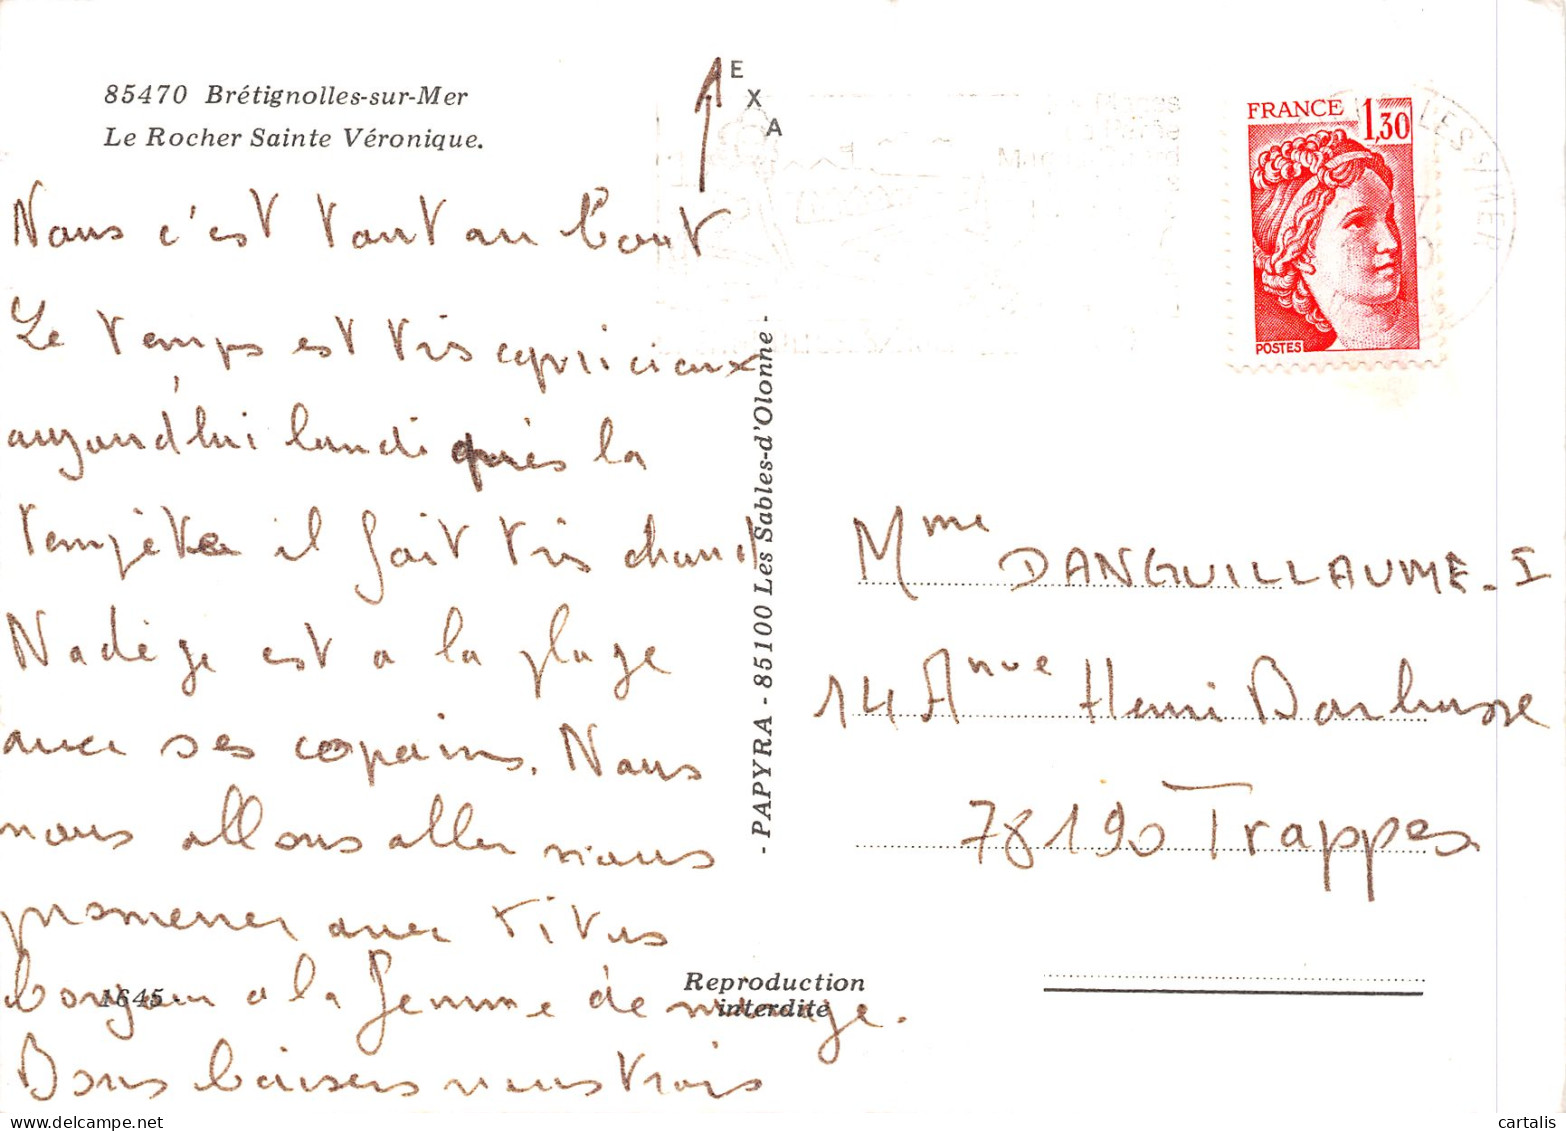 85470 Brétignolles-sur-Mer
Le Rocher Sainte Véronique.
EXA
Nous c'est tout au bout
Le temps est très capricieux
aujourd'hui lundi après la
tempête il fait très chaud
Nadège est a la plage
avec ses copains. Nous
nous allons aller nous
promener avec Titus
bonjour a la femme de ménage.
Bons baisers nous trois
1645
Reproduction
interdite
- PAPYRA - 85100 Les Sables-d'Olonne -
FRANCE 1,30
POSTES
LES S/MER
Mme DANGUILLAUME. I
14 Anue Henri Barbusse
78190 Trappes
cartalis